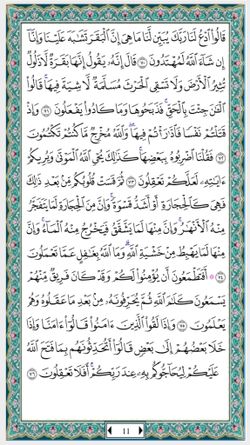 قَالُوا۟ ٱدْعُ لَنَا رَبَّكَ يُبَيِّن لَّنَا مَا هِىَ إِنَّ ٱلْبَقَرَ تَشَٰبَهَ عَلَيْنَا وَإِنَّآ
إِن شَآءَ ٱللَّهُ لَمُهْتَدُونَ ٧٠ قَالَ إِنَّهُۥ يَقُولُ إِنَّهَا بَقَرَةٌ لَّا ذَلُولٌ
تُثِيرُ ٱلْأَرْضَ وَلَا تَسْقِى ٱلْحَرْثَ مُسَلَّمَةٌ لَّا شِيَةَ فِيهَا قَالُوا۟
ٱلْـَٰٔنَ جِئْتَ بِٱلْحَقِّ فَذَبَحُوهَا وَمَا كَادُوا۟ يَفْعَلُونَ ٧١ وَإِذْ
قَتَلْتُمْ نَفْسًا فَٱدَّٰرَْٰٔتُمْ فِيهَا وَٱللَّهُ مُخْرِجٌ مَّا كُنتُمْ تَكْتُمُونَ
٧٢ فَقُلْنَا ٱضْرِبُوهُ بِبَعْضِهَا كَذَٰلِكَ يُحْىِ ٱللَّهُ ٱلْمَوْتَىٰ وَيُرِيكُمْ
ءَايَٰتِهِۦ لَعَلَّكُمْ تَعْقِلُونَ ٧٣ ثُمَّ قَسَتْ قُلُوبُكُم مِّنۢ بَعْدِ ذَٰلِكَ
فَهِىَ كَٱلْحِجَارَةِ أَوْ أَشَدُّ قَسْوَةً وَإِنَّ مِنَ ٱلْحِجَارَةِ لَمَا يَتَفَجَّرُ
مِنْهُ ٱلْأَنْهَٰرُ وَإِنَّ مِنْهَا لَمَا يَشَّقَّقُ فَيَخْرُجُ مِنْهُ ٱلْمَآءُ وَإِنَّ
مِنْهَا لَمَا يَهْبِطُ مِنْ خَشْيَةِ ٱللَّهِ وَمَا ٱللَّهُ بِغَٰفِلٍ عَمَّا تَعْمَلُونَ
٧٤ ۞ أَفَتَطْمَعُونَ أَن يُؤْمِنُوا۟ لَكُمْ وَقَدْ كَانَ فَرِيقٌ مِّنْهُمْ
يَسْمَعُونَ كَلَٰمَ ٱللَّهِ ثُمَّ يُحَرِّفُونَهُۥ مِنۢ بَعْدِ مَا عَقَلُوهُ وَهُمْ
يَعْلَمُونَ ٧٥ وَإِذَا لَقُوا۟ ٱلَّذِينَ ءَامَنُوا۟ قَالُوٓا۟ ءَامَنَّا وَإِذَا
خَلَا بَعْضُهُمْ إِلَىٰ بَعْضٍ قَالُوٓا۟ أَتُحَدِّثُونَهُم بِمَا فَتَحَ ٱللَّهُ
عَلَيْكُمْ لِيُحَآجُّوكُم بِهِۦ عِندَ رَبِّكُمْ أَفَلَا تَعْقِلُونَ ٧٦
11